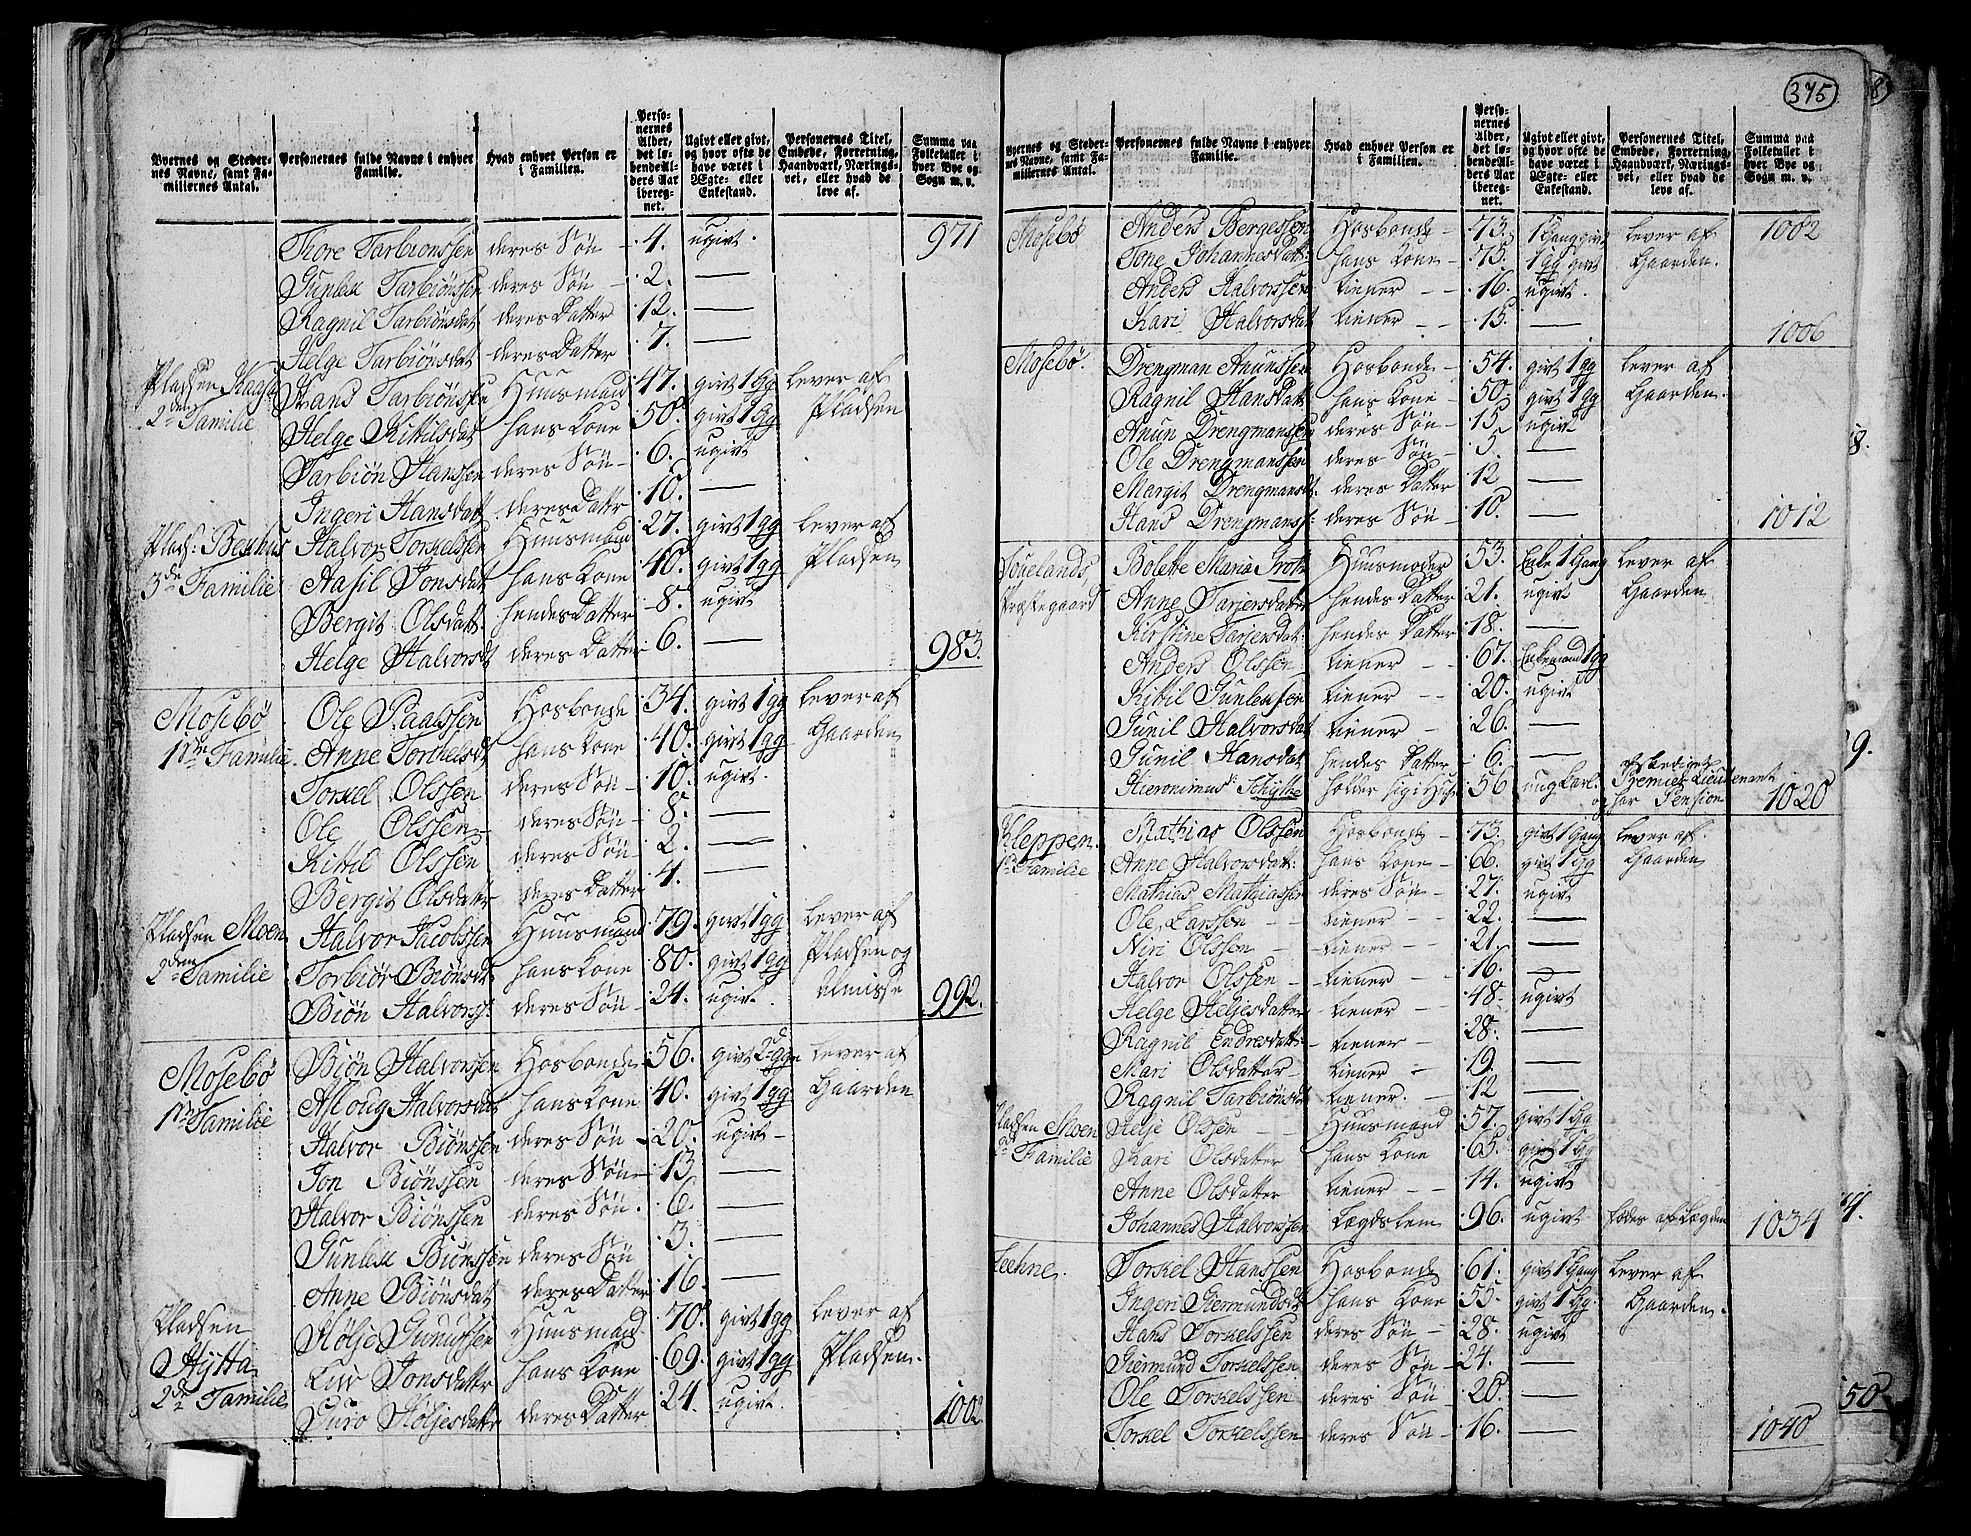 375
Byernes og Stedernes Navne, samt Familiernes Antal. | Personernes fulde Navne i enhver Familie. | Hvad enhver Person er i Familien. | Personernes Alder, det løbende Alders Aar iberegnet. | Ugivt eller givt, og hvor ofte de have været i Ægte- eller Enkestand. | Personernes Titel, Embede, Forretning, Haandværk, Næringsvei, eller hvad de leve af. | Summa paa Folketallet i hver Bye og Sogn m. v.
Thore Tarbionssen | deres Søn | 4. | ugivt. | 971
Gunleu Tarbiønssen | deres Søn | 2. | —
Ragnil Tarbiønsdat | deres Datter | 12. | —
Helge Tarbiønsdat | deres Datter | 7. | —
Pladsen Haaga | Hans Tarbiønssen | Huusmand | 47. | givt 1 Gg | lever af
2den Familie | Helge Kittilsdat | hans Kone | 50. | givt 1 Gg | Pladsen
Tarbiøn Hanssen | deres Søn | 6. | ugivt
Ingeri Hansdatt | deres Dattr | 10. | —
Plads: | Halvor Torkelssen | Huusmand | 27. | givt 1 gg | lever af
3de Familie | Aasil Jonsdat | hans Kone | 40. | givt 1 gg | Pladsen
Bergit Olsdatt | hendes Datter | 8. | ugivt
Helge Halvorsdt | deres Datter | 6. | — | 983.
Mosebø | Ole Paalssen | Hosbonde | 34. | givt 1 gg | lever af
1ste Familie. | Anne Torkelsdt | hans Kone | 40. | givt 1 gg | Gaarden
Torkel Olssen | deres Søn | 10. | ugivt.
Ole Olssen | deres Søn | 8. | —
Kittil Olssen | deres Søn | 2. | —
Bergit Olsdatter | deres Datter | 4. | —
Pladsen Moen | Halvor Jacobssen | Huusmand | 79. | givt 1 gg | lever af
2den Familie | Torbiør Biønsdt | hans Kone | 80. | givt 1 gg | Pladsen og
Biøn Halvorss: | deres Søn | 24. | ugivt. | Almisse | 992.
Mosebø | Biøn Halvorssen | Hosbonde | 56. | givt 2d gg | lever af
1ste Familie | Asloug Halvorsdat | hans Kone | 40. | givt 1 gg | Gaarden
Halvor Biønssen | deres Søn | 20. | ugivt
Jon Biønssen | deres Søn | 13 | —
Halvor Biønssen | deres Søn. | 6. | —
Gunleu Biønssen | deres Søn | 3. | —
Anne Biønsdat | deres Datter | 16. | —
Pladsen | Høljе Gunulfsen | Huusmand | 70. | givt 1 gg | lever af
Hytta | Liv Jonsdatter | hans Kone | 69. | givt 1 gg | Pladsen.
2de Familie | Guro Høljesdattr | deres Datter | 24. | ugivt. | 1002
Byernes og Stedernes Navne, samt Familiernes Antal. | Personernes fulde Navne i enhver Familie. | Hvad enhver Person er i Familien. | Personernes Alder, det løbende Alders Aar iberegnet. | Ugivt eller givt, og hvor ofte de have været i Ægte- eller Enkestand. | Personernes Titel, Embede, Forretning, Haandværk, Næringsvei, eller hvad de leve af. | Summa paa Folketallet i hver Bye og Sogn m. v.
Mosebø | Anders Bergessen | Hosbonde | 73. | 1 Gang givt | lever af | 1002
Tone Johannesdatt: | hans Kone | 75. | 1 gg givt | Gaarden.
Anders Halvorssen | tiener | 16. | ugivt.
Kari Halvorsdat | tiener | 15. | — | 1006
Mosebø. | Drengman Anunssen | Hosbonde | 54. | givt 1 gg | lever af
Ragnil Hansdatt | hans Kone | 50. | givt 1 gg | Gaarden.
Anun Drengmanssen | deres Søn | 15. | ugivt
Ole Drengmanssen | deres Søn | 5. | —
Margit Drengmansdt. | deres Datter | 12 | —
Hans Drengmanss: | deres Søn | 10. | — | 1012
Præstegaard | Bolette Maria Groth | Huusmoder | 53. | Enke 1 Gang | lever af
Anne Tarjersdatter | hendes Datter | 21. | ugivt | Gaarden
Kirstine Tarjersdat: | hendes Datter | 18. | —
Anders Olssen | tiener | 67. | Enkemand 1 gg
Kittil Gunleusen | tiener | 20. | ugivt
Gunil Halvorsdat | tiener | 26. | —
Gunil Hansdat | hendes Datter | 6. | —
Hieronimus Schytte | holder sig i Huset | 56 | ung Karl. | afskediget Premier Lieutenant og har Pension | 1020
Kleppen. | Mathias Olssen | Hosbonde | 73. | givt 1 Gang | lever af
1ste Familie | Anne Halvorsdatt: | hans Kone | 66. | givt 1 Gg | Gaarden
Mathias Mathiassen | deres Søn | 27. | ugivt
Ole Larssen | tiener | 22. | —
Niri Olssen | tiener | 21. | —
Halvor Olssen | tiener | 16. | —
Helge Heljesdatter | tiener | 48. | ugivt
Ragnil Endresdatt: | tiener | 28. | —
Mari Olsdatter | tiener | 19. | —
Ragnil Tarbiønsdat | tiener. | 12 | —
Pladsen Moen | Helje Olssen | Huusmand | 57. | givt 1 Gg
2d Familie | Kari Olsdatter | hans Kone | 65. | givt 1 Gg
Anne Olsdatter | tiener | 14. | ugivt
Johannes Halvorssen | Lægdslem | 96. | ugivt | fødes af Lægden | 1034
Torkel Hanssen | Hosbonde | 61. | givt 1 Gang | lever af
Ingeri Giermundsdt | hans Kone | 55. | givt 1 Gg. | Gaarden.
Hans Torkelssen | deres Søn | 28. | ugivt
Giermund Torkelssen | deres Søn | 24. | —
Ole Torkelssen | deres Søn | 20. | —
Torkel Torkelssen | deres Søn | 16. | — | 1040
8.
9.
50